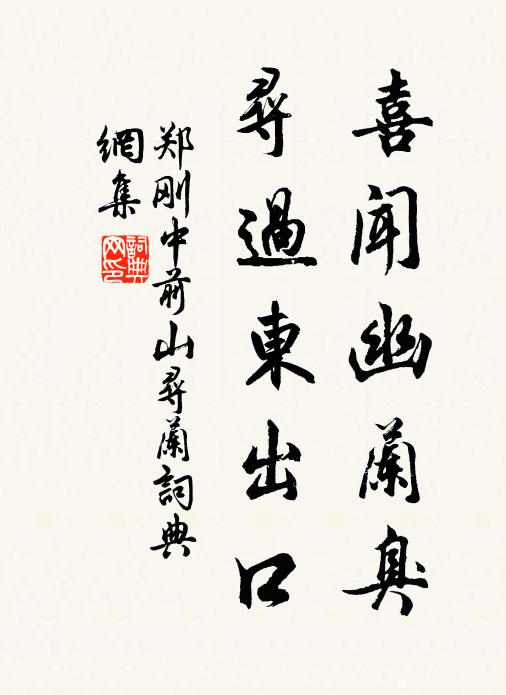 喜闻幽蘭臭
尋過東出口
郑刚中前山尋蘭詞典
網集
詞典网印